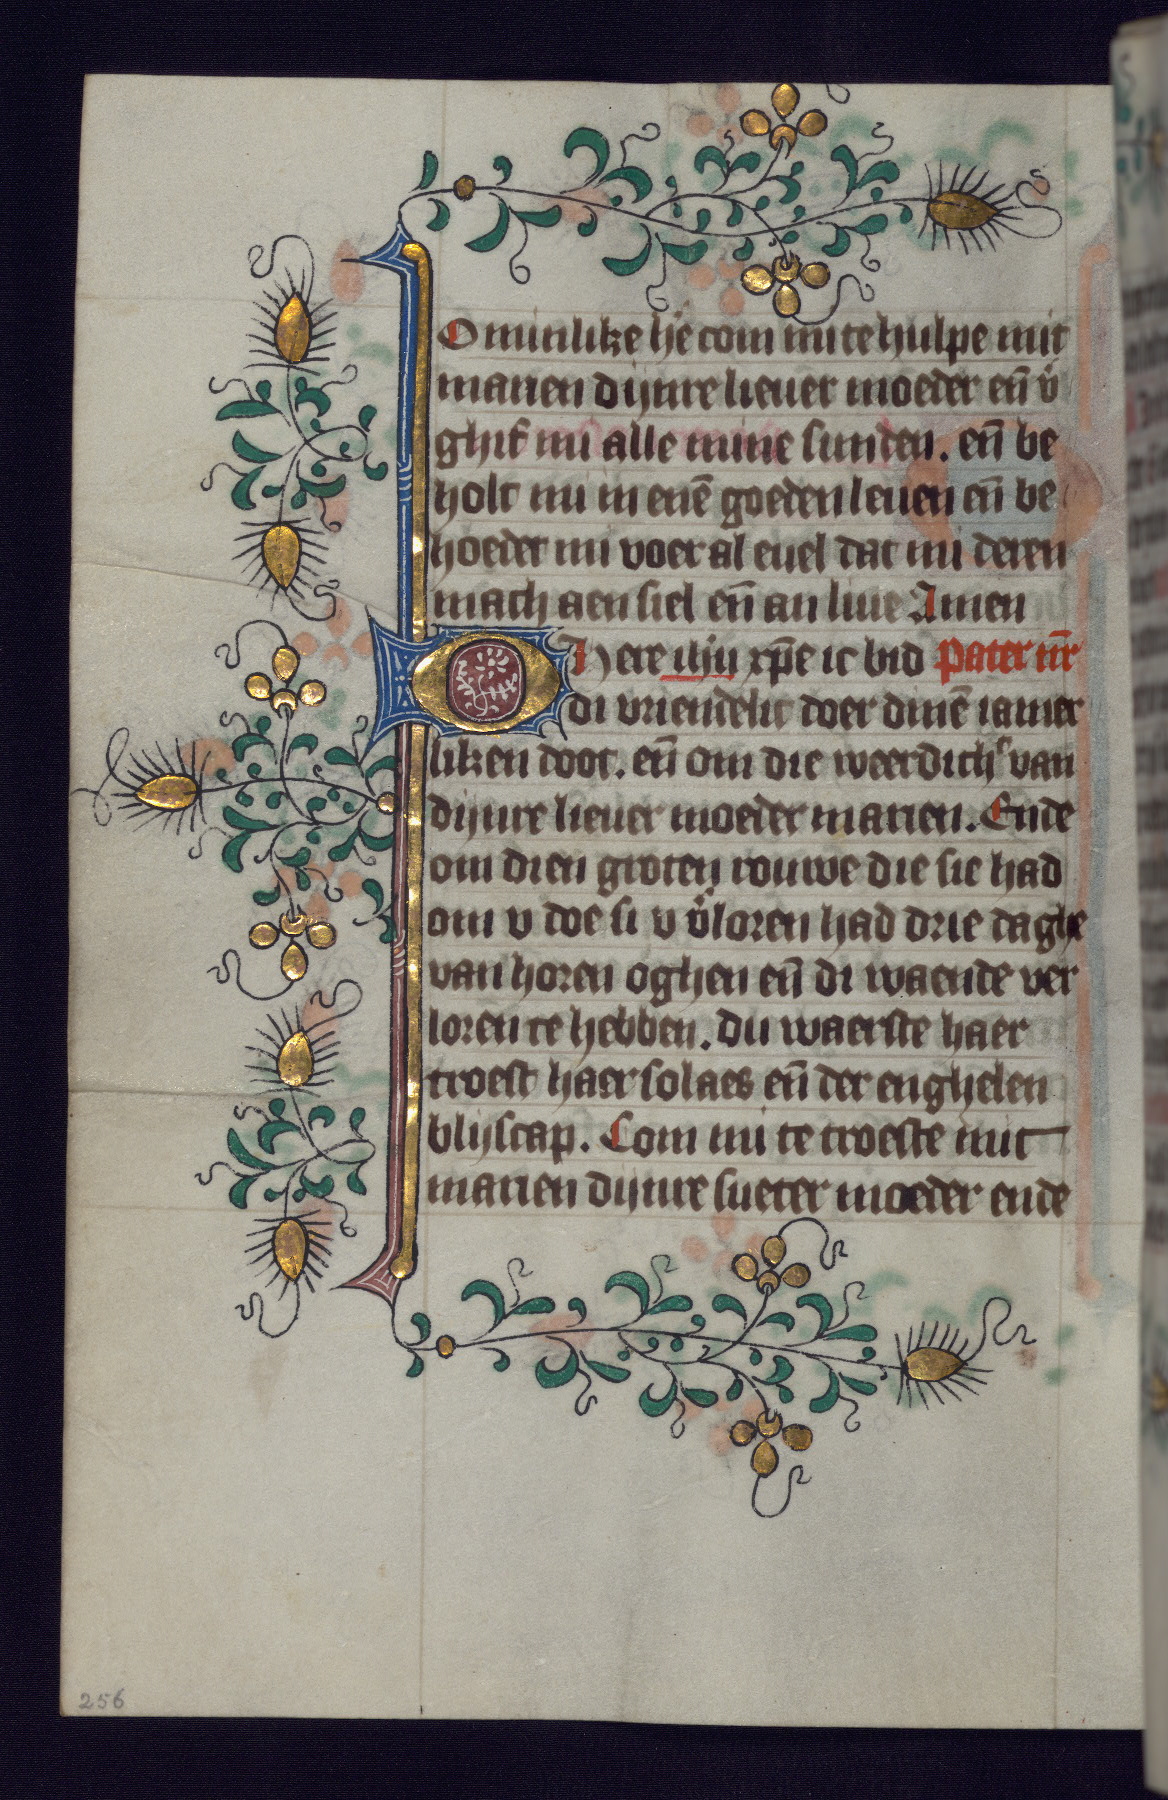 O minlike he͛ com mi te hulpe mit
marien dijnre lieuer moeder en̄ v̓
ghif mi alle mine sunden. en̄ be
holt mi in enē goeden leuen en̄ be
hoeder mi voer al euel dat mi deren
mach aen siel en̄ an liue Amen
O Here ihū xp̄e ic bid Pater nr̄
di vriendelic doer dinē iamer
liken doot. en̄ om die weerdich͛ van
dijnre lieuer moeder marien. Ende
om dien groten rouwe die sie had
om v doe si v v̓loren had drie daghe
van horen oghen en̄ di waende ver
loren te hebben. Du waerste haer
troest haer solaes en̄ der enghelen
blijscap. Com mi te troeste mit
marien dijnre sueter moeder ende
256